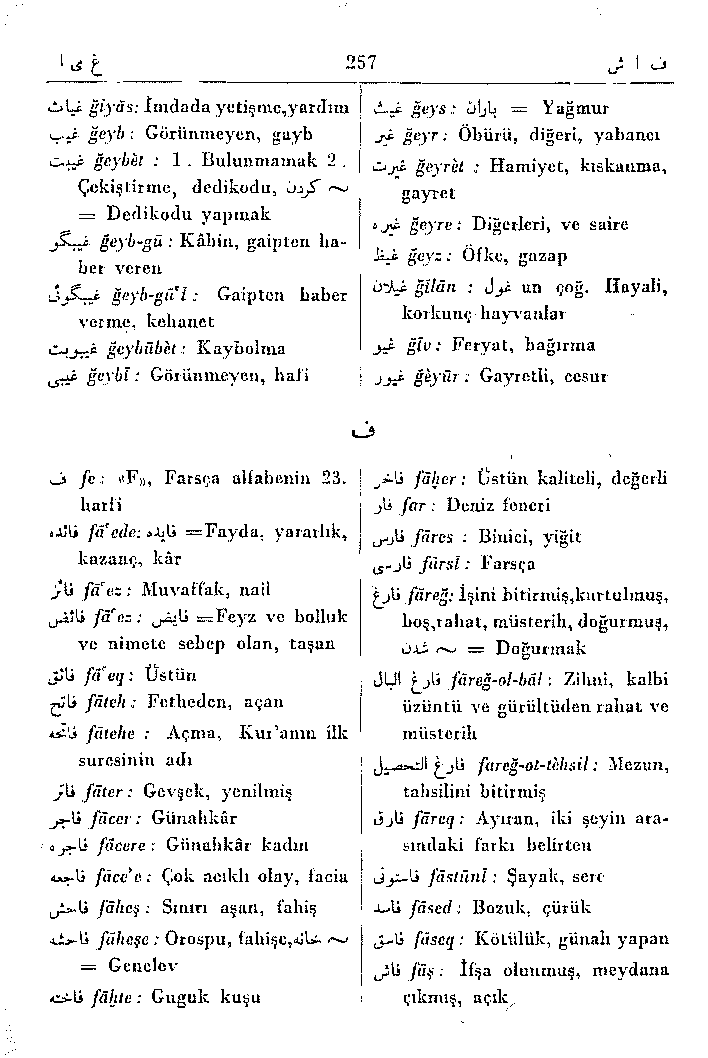 غ ی ا
257
ف ا ش
غیاث ğiyās: İmdada yetişme,yardım
غیب ğeyb : Görünmeyen, gayb
غیبت ğeybèt : 1 . Bulunmamak 2 .
Çekiştirme, dedikodu, کردن ~
= Dedikodu yapmak
غیبگو ğeyb-gū : Kâhin, gaipten ha-
ber veren
غیبگوئی ğeyb-gū'ī : Gaipten haber
verme, kehanet
غیبوبت ğeybūbèt : Kaybolma
غیبی ğeybī : Görünmeyen, hafi
غیث ğeys : باران = Yağmur
غیر ğeyr : Öbürü, diğeri, yabancı
غیرت ğeyrèt : Hamiyet, kıskanma,
gayret
غیره ğeyre : Diğerleri, ve saire
غیظ ğeyz : Öfke, gazap
غیلان ğīlān : غول un çoğ. Hayali,
korkunç hayvanlar
غیو ğīv : Feryat, bağırma
غیور ğèyūr : Gayretli, cesur
ف
ف fe : «F», Farsça alfabenin 23.
harfi
فائده fā'ede: فایده =Fayda, yararlık,
kazanç, kâr
فائز fā'ez : Muvaffak, nail
فائض fā'ez : فایض =Feyz ve bolluk
ve nimete sebep olan, taşan
فائق fā'eq : Üstün
فاتح fāteh : Fetheden, açan
فاتحه fātehe : Açma, Kur'anın ilk
suresinin adı
فاتر fāter : Gevşek, yenilmiş
فاجر fācer : Günahkâr
فاجره fācere : Günahkâr kadın
فاجعه fāce'e : Çok acıklı olay, facia
فاحش fāheş : Sınırı aşan, fahiş
فاحشه fāheşe : Orospu, fahişe,خانه ~
= Genelev
فاخته fāḫte : Guguk kuşu
فاخر fāḫer : Üstün kaliteli, değerli
فار far : Deniz feneri
فارس fāres : Binici, yiğit
فارسی fārsī : Farsça
فارغ fāreğ: İşini bitirmiş,kurtulmuş,
boş,rahat, müsterih, doğurmuş,
شدن ~ = Doğurmak
فارغ البال fāreğ-ol-bāl : Zihni, kalbi
üzüntü ve gürültüden rahat ve
müsterih
فارغ التحصیل fareğ-ot-tèhsil : Mezun,
tahsilini bitirmiş
فارق fāreq : Ayıran, iki şeyin ara-
sındaki farkı belirten
فاستونی fāstūnī : Şayak, serc
فاسد fāsed : Bozuk, çürük
فاسق fāseq : Kötülük, günah yapan
فاش fāş : İfşa olunmuş, meydana
çıkmış, açık